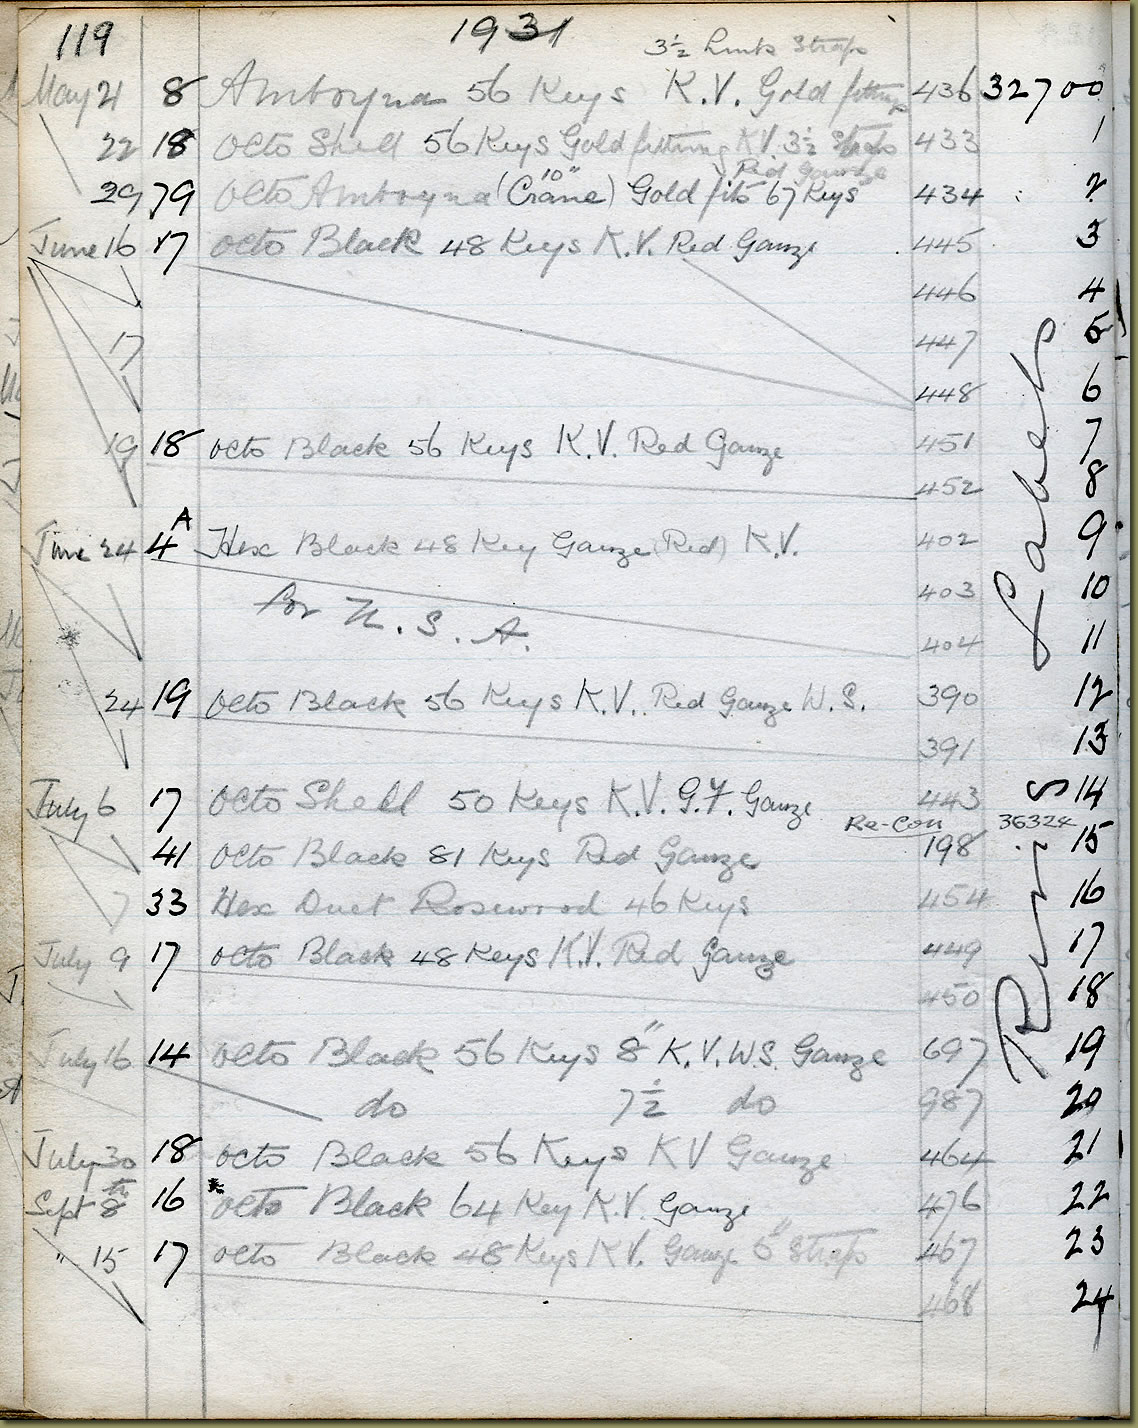 119 1931
3½ Links Straps
May 21 8 Amboyna 56 Keys K.V. Gold fittings 436 32700
22 18 Octo Shell 56 Keys Gold fittings K.V. 3½ Straps 433 1
Red Gauze
29 79 Octo Amboyna (Crane) 10" Gold fits 67 Keys 434 2
June 16 17 Octo Black 48 Keys K.V. Red Gauze 445 3
446 4
17 447 5
448 6
19 18 Octo Black 56 Keys K.V. Red Gauze 451 7
452 8
June 24 4A Hex Black 48 Key Gauze (Red) K.V. 402 9
403 10
for U.S.A. 404 11
24 19 Octo Black 56 Keys K.V. Red Gauze W.S. 390 12
391 13
July 6 17 Octo Shell 50 Keys K.V. G.F. Gauze 443 14
Re-Con 36324
41 Octo Black 81 Keys Red Gauze 198 15
7 33 Hex Duet Rosewood 46 Keys 454 16
July 9 17 Octo Black 48 Keys K.V. Red Gauze 449 17
450 18
July 16 14 Octo Black 56 Keys 8" K.V. W.S. Gauze 697 19
do 7½ do 987 20
July 30 18 Octo Black 56 Keys KV Gauze 464 21
Sept 8th 16 Octo Black 64 Key K.V. Gauze 476 22
" 15 17 Octo Black 48 Keys K.V. Gauze 5" Straps 467 23
468 24
Labels